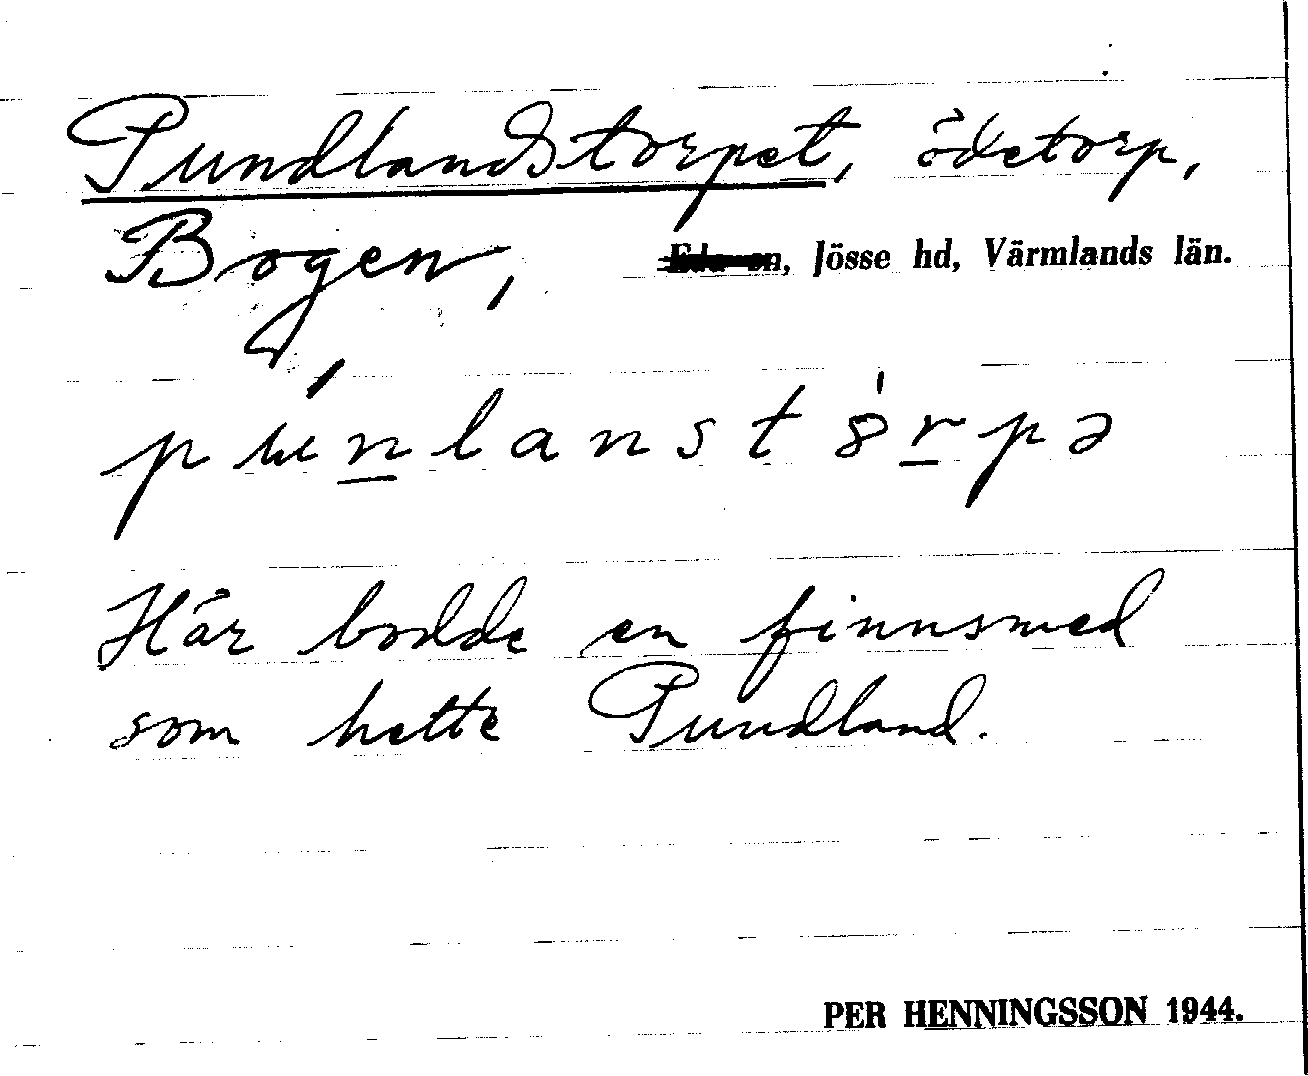 Pundlandstorpet, ödetorp,
Bogen, Jösse hd, Värmlands län.
Här bodde en finnsmed
som hette Pundland.
PER HENNINGSSON 1944.